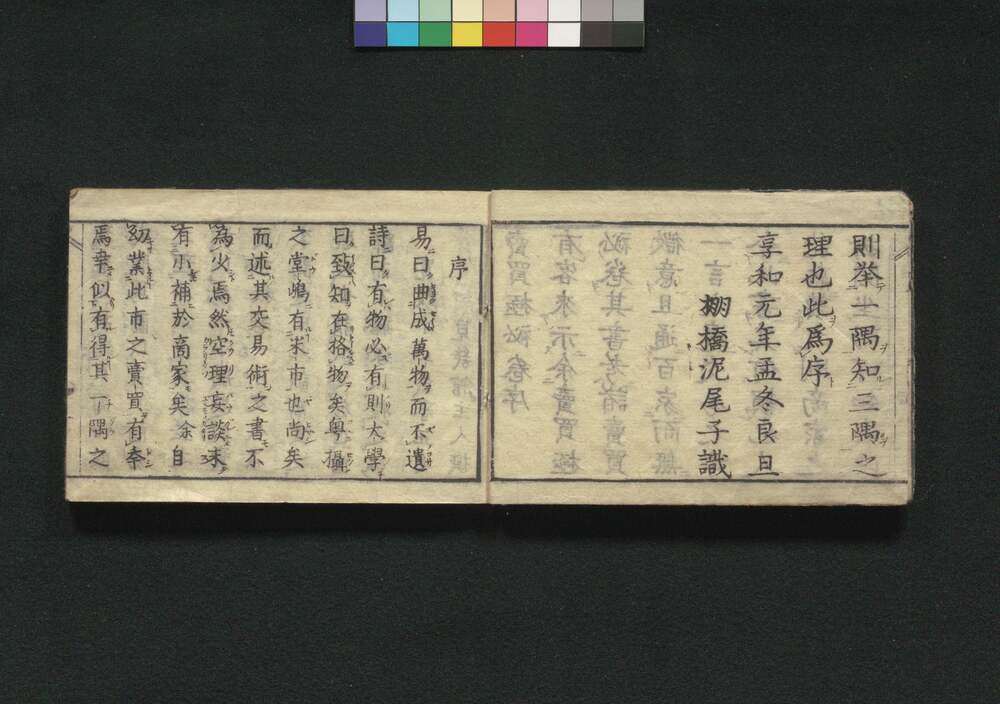 則举一隅知三隅之
理也此爲序
享和元年孟冬良旦
棚橋泥尾子識
序
易曰曲成萬物而不遺
詩曰有物必有則大學
曰致知在格物矣粤攝
之堂嶋有米市也尚矣
而述其交易術之書不
為少焉然空理妄談末
有小補於商家矣余自
幼業此市之賣買有奉
焉幸似有得其一隅之